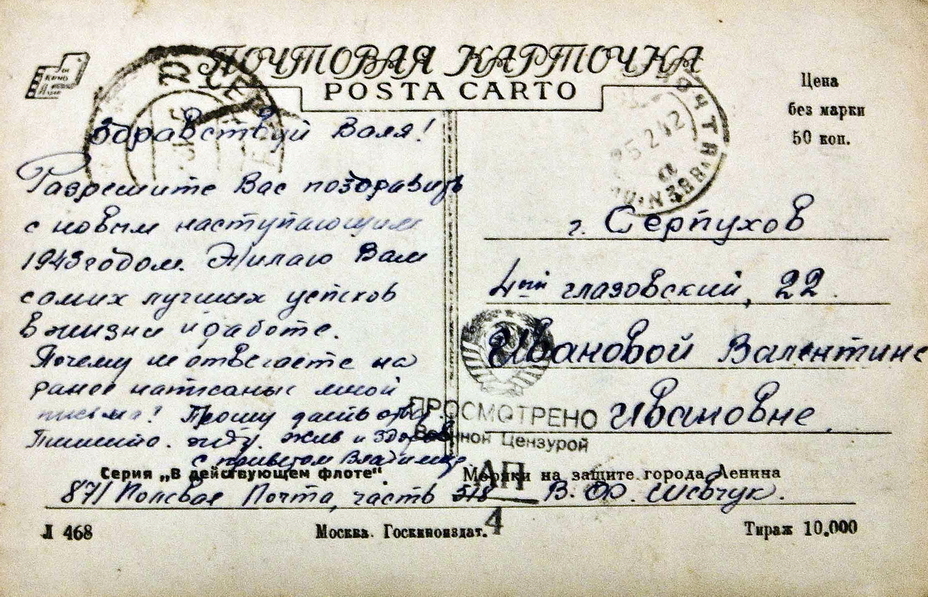 ПОЧТОВАЯ КАРТОЧКА
POSTA CARTO
Цена
без марки
50 коп.
Здравствуй Валя!
Разрешите Вас поздравить
с новым наступающим
1943 годом. Жилаю Вам
самих лучших успехов
в жизни и работе.
Почему не отвечаете на
ранее написаные мной
письма? Прошу дать
Пишите. жду. жив и
с приветом Владимир
г. Серпухов
4ый глазовский, 22
Ивановой Валентине
Ивановне.
ПРОСМОТРЕНО
Военной Цензурой
Серия „В действующем флоте“
Моряки на защите города Ленина
871 Полевая Почта, часть 518 В. Ф. Шевчук.
4
Л 468
Москва. Госкиноиздат.
Тираж 10.000